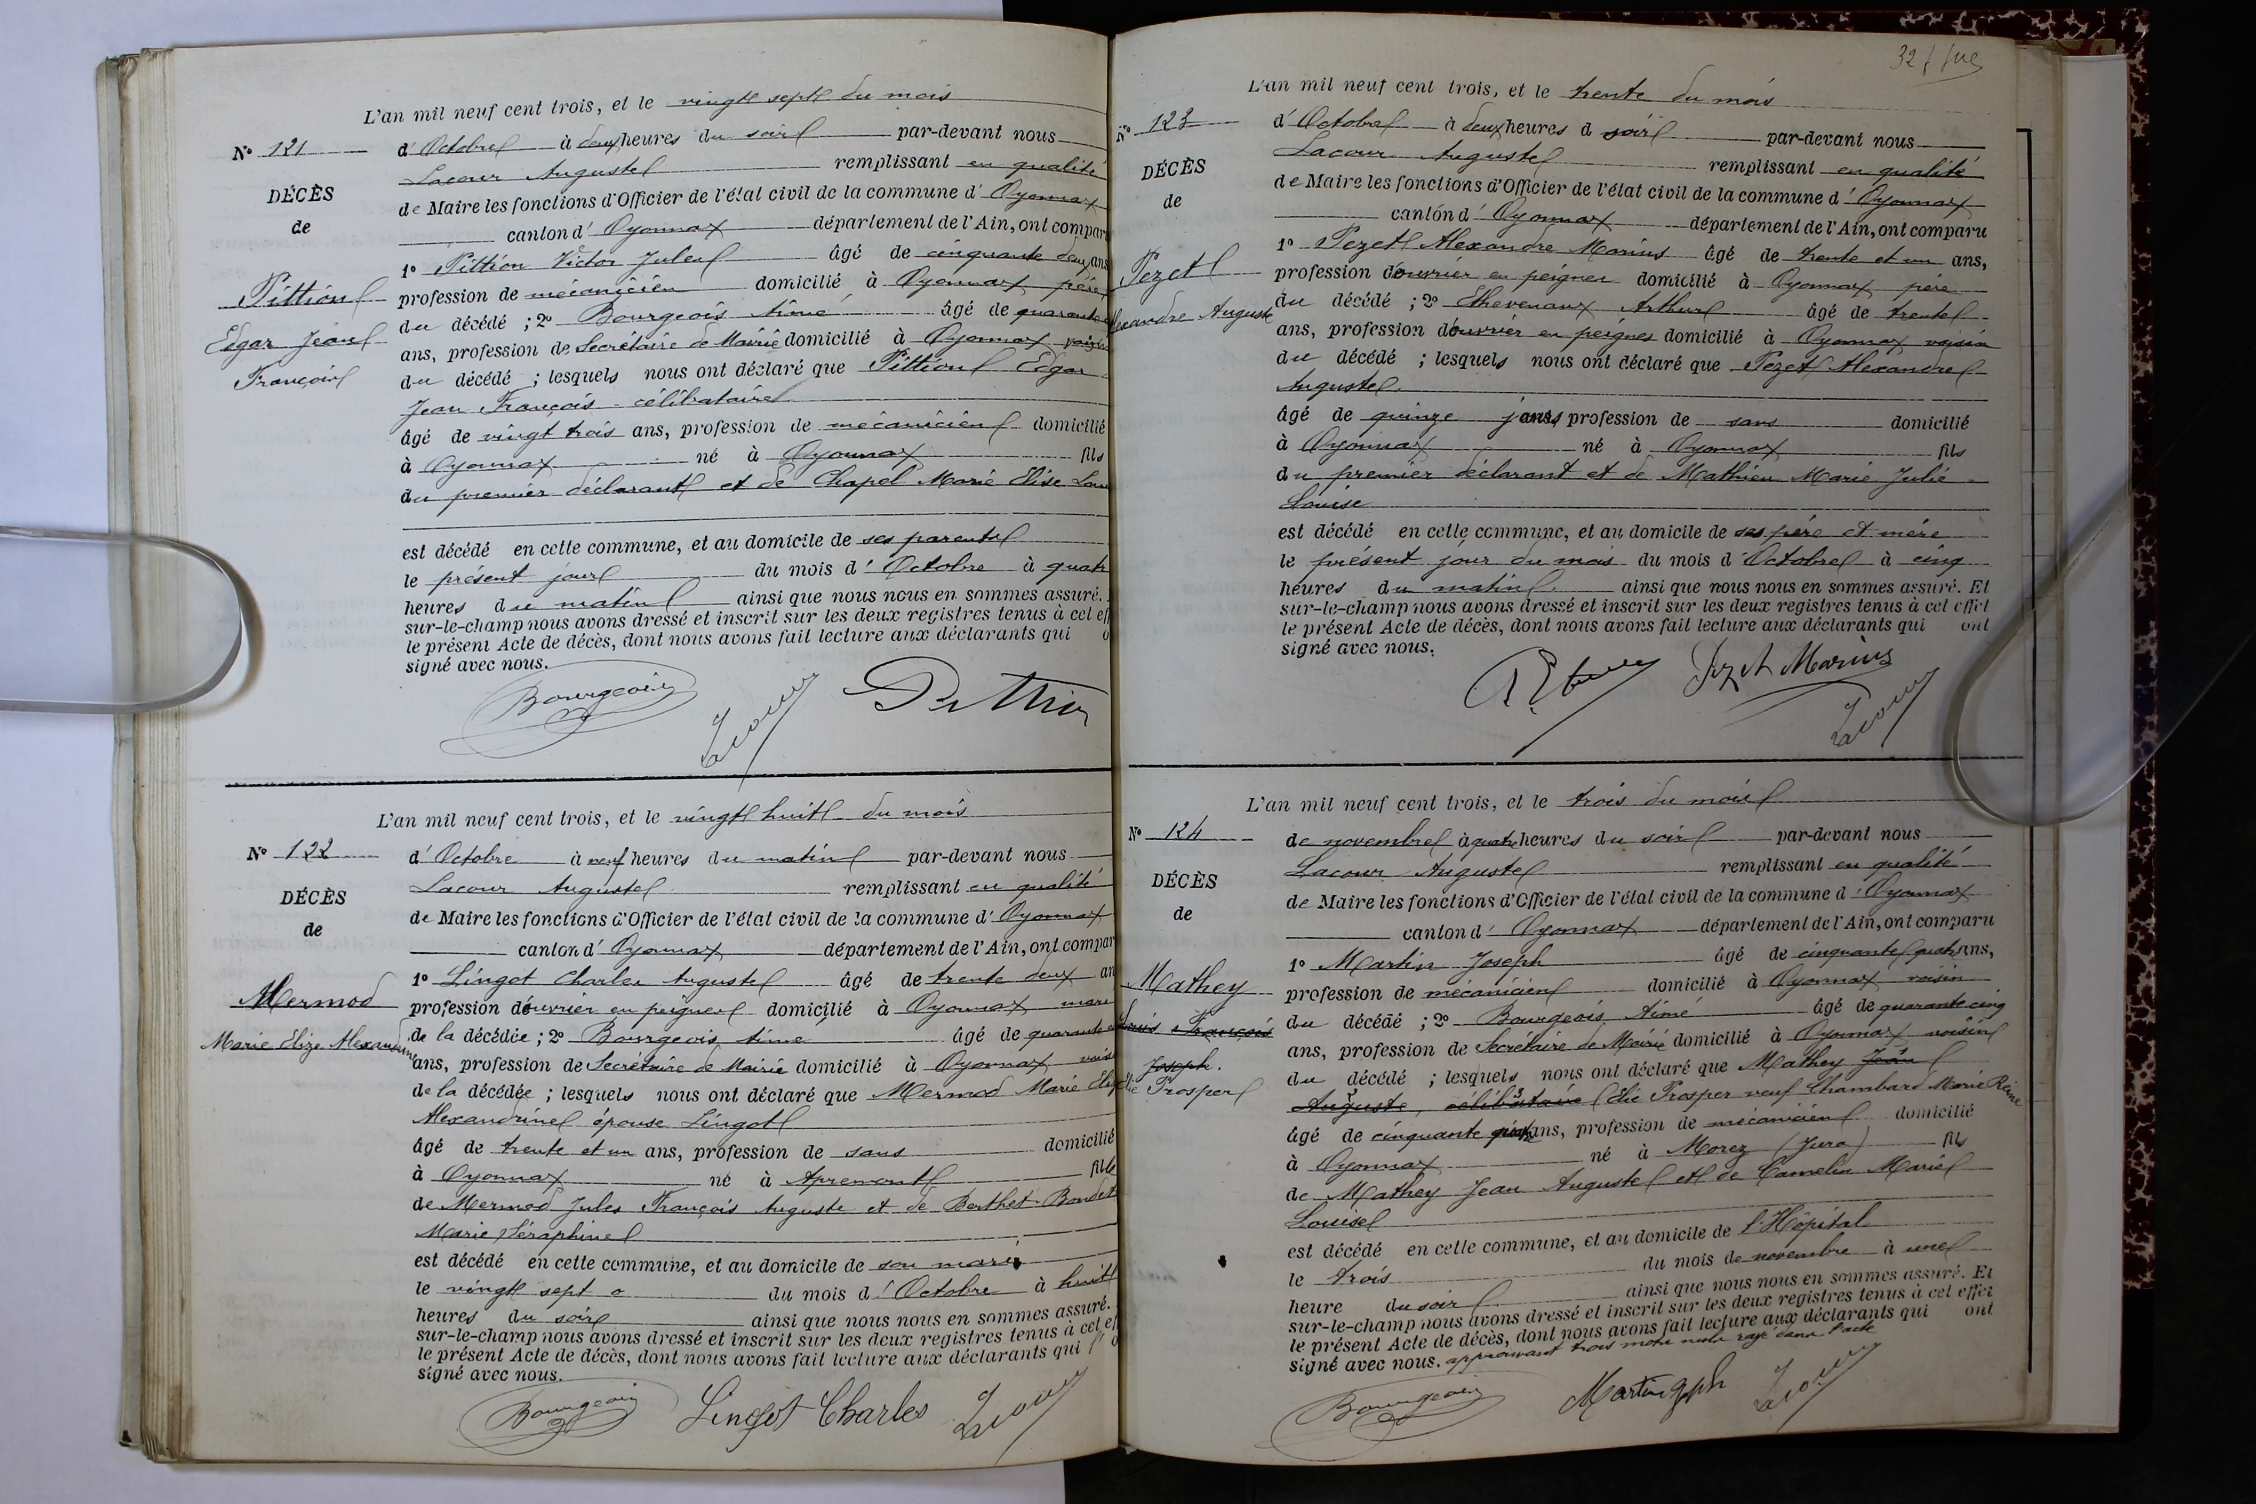 L'an mil neuf cent trois, et le vingt sept du mois
N° 121
d'Octobre à deux heures du soir par-devant nous
Lacour Auguste remplissant en qualité
DÉCÈS
de Maire les fonctions d'Officier de l'état civil de la commune d'Oyonnax
de
canton d'Oyonnax département de l'Ain, ont compar
1° Pittion Victor Jules âgé de cinquante deux ans
Pittion
profession de mécanicien domicilié à Oyonnax père
Edgar Jean
du décédé ; 2° Bourgeois Aimé âgé de quarante
François
ans, profession de Secrétaire de Mairie domicilié à Oyonnax voisin
du décédé ; lesquels nous ont déclaré que Pittion Edgar
Jean François célibataire
âgé de vingt trois ans, profession de mécanicien domicilié
à Oyonnax né à Oyonnax fils
du premier déclarant et de Chapel Marie Elise
est décédé en cette commune, et au domicile de ses parents
le présent jour du mois d'Octobre à quatr
heures du matin ainsi que nous nous en sommes assuré.
sur-le-champ nous avons dressé et inscrit sur les deux registres tenus à cet ef
le présent Acte de décès, dont nous avons fait lecture aux déclarants qui o
signé avec nous.
Bourgeois Lacour Pittion
L'an mil neuf cent trois, et le vingt huit du mois
N° 122
d'Octobre à neuf heures du matin par-devant nous
Lacour Auguste remplissant en qualité
DÉCÈS
de Maire les fonctions d'Officier de l'état civil de la commune d'Oyonnax
de
canton d'Oyonnax département de l'Ain, ont compar
1° Lingot Charles Auguste âgé de trente deux an
Mermod
profession d'ouvrier en peignes domicilié à Oyonnax mari
Marie Elize Alexandrine
de la décédée ; 2° Bourgeois Aimé âgé de quarante
ans, profession de Secrétaire de Mairie domicilié à Oyonnax vois
de la décédée ; lesquels nous ont déclaré que Mermod Marie Elize
Alexandrine épouse Lingot
âgé de trente et un ans, profession de sans domicilié
à Oyonnax né à Apremont fille
de Mermod Jules François Auguste et de Berthet Bondet
Marie Séraphine
est décédé en cette commune, et au domicile de son mari
le vingt sept du mois d'Octobre à huit
heures du soir ainsi que nous nous en sommes assuré.
sur-le-champ nous avons dressé et inscrit sur les deux registres tenus à cet ef
le présent Acte de décès, dont nous avons fait lecture aux déclarants qui o
signé avec nous.
Bourgeois Lingot Charles Lacour
32
L'an mil neuf cent trois, et le trente du mois
N° 123
d'Octobre à deux heures d soir par-devant nous
Lacour Auguste remplissant en qualité
DÉCÈS
de Maire les fonctions d'Officier de l'état civil de la commune d'Oyonnax
de
canton d'Oyonnax département de l'Ain, ont comparu
1° Pezet Alexandre Marius âgé de trente et un ans,
Pezet
profession d'ouvrier en peignes domicilié à Oyonnax père
lexandre Auguste
du décédé ; 2° Ethevenaux Arthur âgé de trente
ans, profession d'ouvrier en peignes domicilié à Oyonnax voisin
du décédé ; lesquels nous ont déclaré que Pezet Alexandre
Auguste
âgé de quinze jours profession de sans domicilié
à Oyonnax né à Oyonnax fils
du premier déclarant et de Mathieu Marie Julie
Louise
est décédé en cette commune, et au domicile de ses père et mère
le présent jour du mois du mois d'Octobre à cinq
heures du matin ainsi que nous nous en sommes assuré. Et
sur-le-champ nous avons dressé et inscrit sur les deux registres tenus à cet effet
le présent Acte de décès, dont nous avons fait lecture aux déclarants qui ont
signé avec nous.
Pezet Marius Lacour
L'an mil neuf cent trois, et le trois du mois
N° 124
de novembre à quatre heures du soir par-devant nous
Lacour Auguste remplissant en qualité
DÉCÈS
de Maire les fonctions d'Officier de l'état civil de la commune d'Oyonnax
de
canton d'Oyonnax département de l'Ain, ont comparu
1° Martin Joseph âgé de cinquante quatre ans,
Mathey
profession de mécanicien domicilié à Oyonnax voisin
Louis François
du décédé ; 2° Bourgeois Aimé âgé de quarante cinq
Joseph.
ans, profession de Secrétaire de Mairie domicilié à Oyonnax voisin
Elie Prosper
du décédé ; lesquels nous ont déclaré que Mathey Jean
Auguste, célibataire Elie Prosper veuf Chambard Marie Reine
âgé de cinquante ans, profession de mécanicien domicilié
à Oyonnax né à Morez (Jura) fils
de Mathey Jean Auguste et de Camelin Marie
Louise
est décédé en cette commune, et au domicile de l'Hôpital
le trois du mois de novembre à une
heure du soir ainsi que nous nous en sommes assuré. Et
sur-le-champ nous avons dressé et inscrit sur les deux registres tenus à cet effet
le présent Acte de décès, dont nous avons fait lecture aux déclarants qui ont
signé avec nous. approuvant trois mots nuls rayé dans l'acte
Bourgeois Martin Jph Lacour